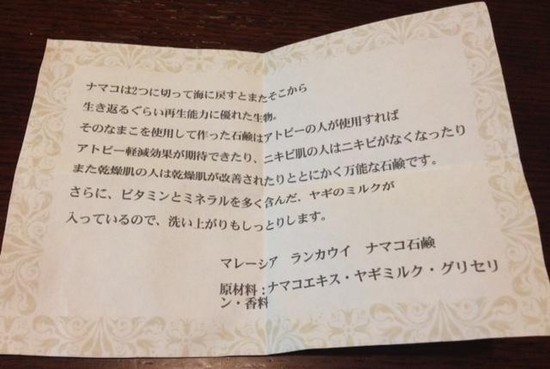 ナマコは2つに切って海に戻すとまたそこから
生き返るぐらい再生能力に優れた生物。
そのなまこを使用して作った石鹸はアトピーの人が使用すれば
アトピー軽減効果が期待できたり、ニキビ肌の人はニキビがなくなったり
また乾燥肌の人は乾燥肌が改善されたりととにかく万能な石鹸です。
さらに、ビタミンとミネラルを多く含んだ、ヤギのミルクが
入っているので、洗い上がりもしっとりします。
マレーシア ランカウイ ナマコ石鹸
原材料：ナマコエキス・ヤギミルク・グリセリ
ン・香料